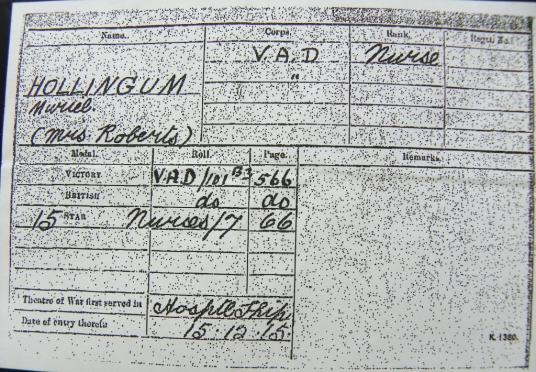 Name. Corps. Rank. Regtl. No.
V.A.D Nurse
HOLLINGUM "
Muriel
(Mrs Roberts)
Medal. Roll. Page. Remarks.
VICTORY V.A.D/101 B3 566
BRITISH do do
15 STAR Nurses/7 66
Theatre of War first served in Hosptl Ship
Date of entry therein 15.12.15.
K. 1380.